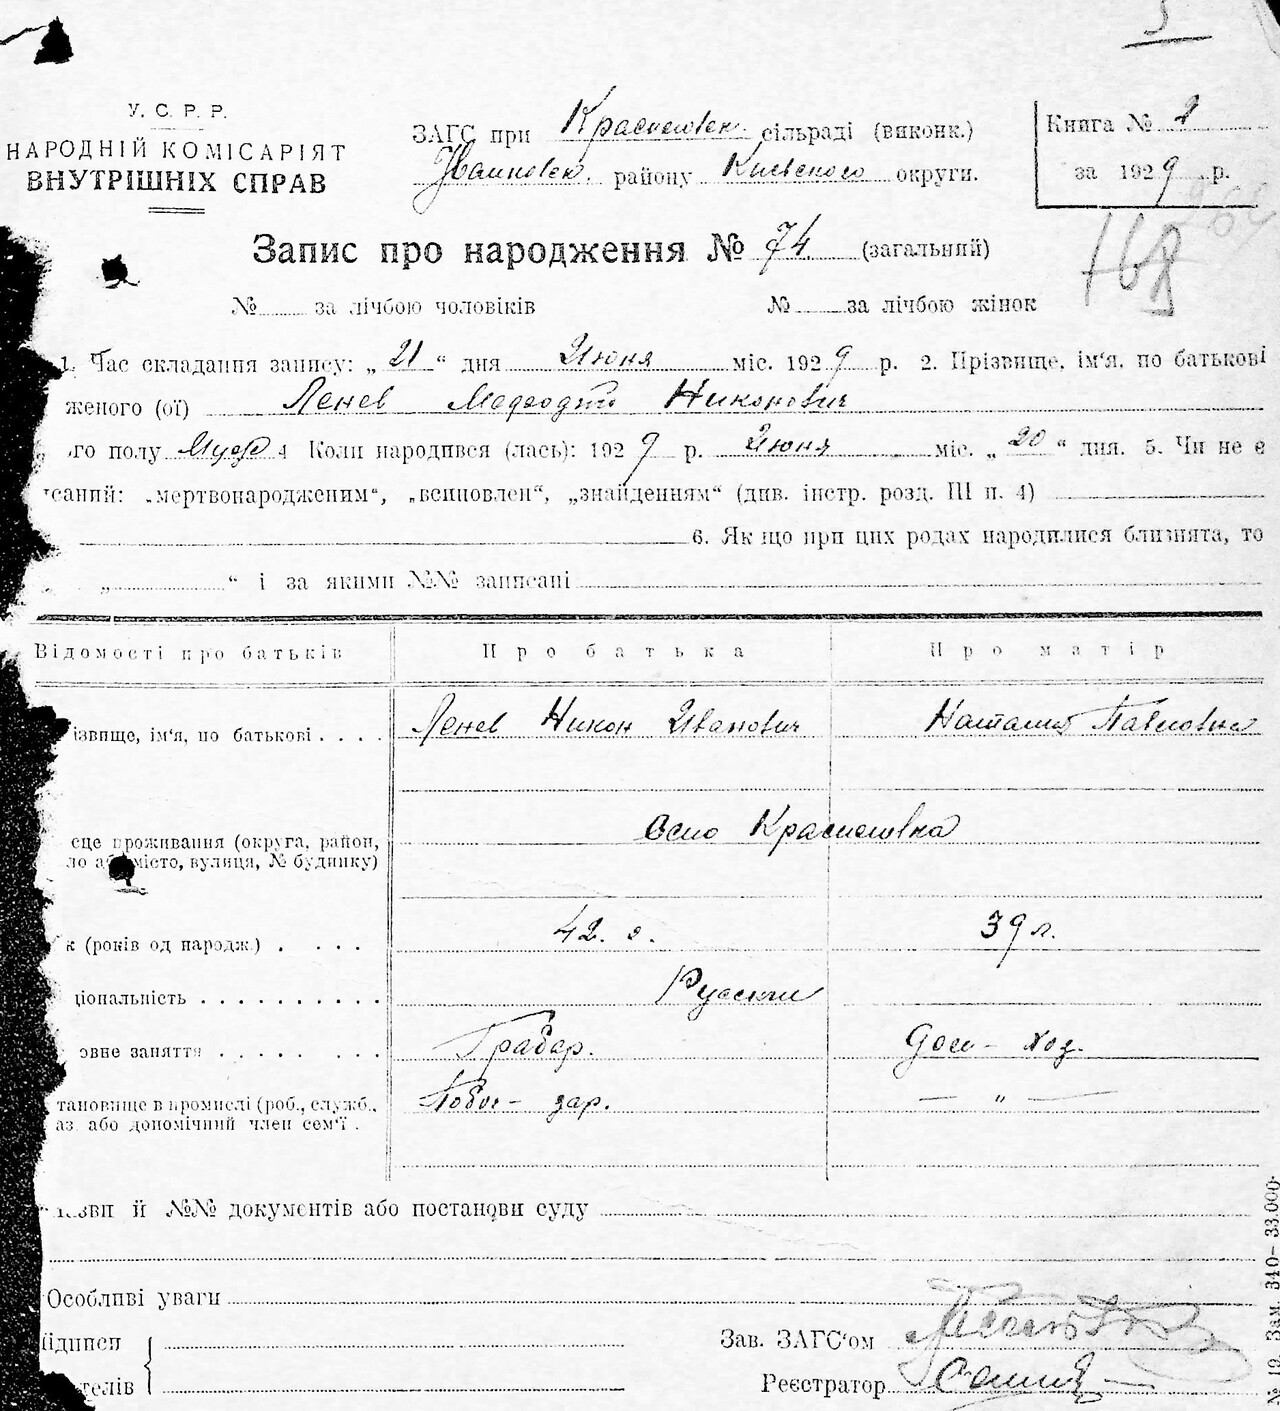 5
У. С. Р. Р.
НАРОДНІЙ КОМІСАРІЯТ
ВНУТРІШНІХ СПРАВ
ЗАГС при Краснеловск. сільраді (виконк.)
району Киевского округи.
Книга № 2
за 1929 р.
168
Запис про народження № 74 (загальний)
№ за лічбою чоловіків № за лічбою жінок
1. Час складання запису: „21“ дня Июня міс. 1929 р. 2. Прізвище, ім‘я, по батькові
женого (ої) Ленев Мефодий Никонович
го полу Муж 4 Коли народився (лась): 1929 р. Июня міс. „20“ дня. 5. Чи не є
саний: „мертвонародженим“, „всиновлен“, „знайденням“ (див. інстр. розд. III п. 4)
6. Як що при цих родах народилися близнята, то
„ “ і за якими №№ записані
Відомості про батьків Про батька Про матір
ізвище, ім‘я, по батькові . . . . Ленев Никон Иванович Наталия Павловна
сце проживання (округа, район, Село Краснеловка
ло або місто, вулиця, № будинку)
к (років од народж.) . . . . 42. г. 39 л.
ціональність . . . . . . . . . . Русские
овне заняття . . . . . . . . . Грабар. Дом- хоз.
тановище в промислі (роб., служб., Побоч- зар. — „ —
аз. або допомічний член сем‘ї .
азви й №№ документів або постанови суду
Особливі уваги
ідписи Зав. ЗАГС‘ом
телів Реєстратор
№ 19. Зам. 340— 33.000.